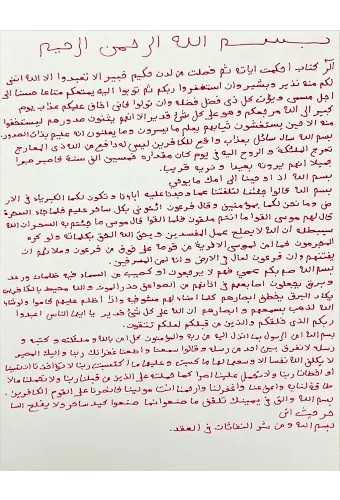 بسم الله الرحمن الرحيم
الر كتاب احكمت اياته ثم فصلت من لدن حكيم خبير الا تعبدوا الا الله انني
لكم منه نذير وبشير وان استغفروا ربكم ثم توبوا اليه يمتعكم متاعا حسنا الى
اجل مسمى ويؤت كل ذي فضل فضله وان تولوا فاني اخاف عليكم عذاب يوم
كبير الى الله مرجعكم وهو على كل شئ قدير الا انهم يثنون صدورهم ليستخفوا
منه الا حين يستغشون ثيابهم يعلم ما يسرون وما يعلنون انه عليم بذات الصدور.
بسم الله سال سائل بعذاب واقع للكافرين ليس له دافع من الله ذي المعارج
تعرج الملئكة و الروح اليه في يوم كان مقداره خمسين الف سنة فاصبر صبرا
جميلا انهم يرونه بعيدا ونريه قريبا.
بسم الله اذ اوحينا الى امك ما يوحي
بسم الله قالوا اجئتنا لتلفتنا عما وجدنا عليه اباونا وتكون لكما الكبرياء في الار
ض وما نحن لكما بمؤمنين وقال فرعون ائتوني بكل ساحر عليم فلما جاء السحرة
قال لهم موسى القوا ما انتم ملقون فلما القوا قال موسى ما جئتم به السحر ان الله
سيبطله ان الله لا يصلح عمل المفسدين ويحق الله الحق بكلماته ولو كره
المجرمون فما امن لموسى الا ذرية من قومه على خوف من فرعون وملائهم ان
يفتنهم وان فرعون لعال في الارض وانه لمن المسرفين.
بسم الله صم بكم عمي فهم لا يرجعون او كصيب من السماء فيه ظلمات ورعد
وبرق يجعلون اصابعهم في اذانهم من الصواعق حذر الموت والله محيط بالكافرين
يكاد البرق يخطف ابصارهم كلما اضاء لهم مشوا فيه واذا اظلم عليهم قاموا ولو شاء
الله لذهب بسمعهم و ابصارهم ان الله على كل شئ قدير يا ايها الناس اعبدوا
ربكم الذي خلقكم والذين من قبلكم لعلكم تتقون.
بسم الله امن الرسول بما انزل اليه من ربه والمؤمنون كل امن بالله وملئكته و كتبه و
رسله لا نفرق بين احد من رسله و قالوا سمعنا واطعنا غفرانك ربنا واليك المصير
لا يكلف الله نفسا الا وسعها لها ما كسبت و عليها ما اكتسبت ربنا لا تؤاخذنا ان نسينا
او اخطانا ربنا ولا تحمل علينا اصرا كما حملته على الذين من قبلنا ربنا ولا تحملنا مالا
طاقة لنا به واعف عنا واغفر لنا وارحمنا انت مولينا فانصرنا على القوم الكافرين.
بسم الله والق في يمينك تلقف ما صنعوا انما صنعوا كيد ساحر ولا يفلح السا
حر حيث اتى
بسم الله و من شر النفاثات في العقد.